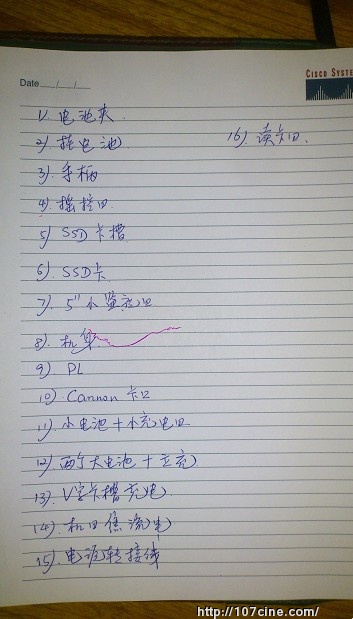 CISCO SYSTE
Date / /
1). 电池夹
2). 挂电池
16). 读卡口.
3). 手柄
4). 摇控口
5) SSD卡槽
6). SSD卡
7). 5"小监视口
8). 机身
9) PL
10) Cannon 卡口
11). 小电池+小充电口
12) 两个大电池+立充
13). V字卡槽充电
14). 机口焦
15). 电源转接线
http://107cine.com/